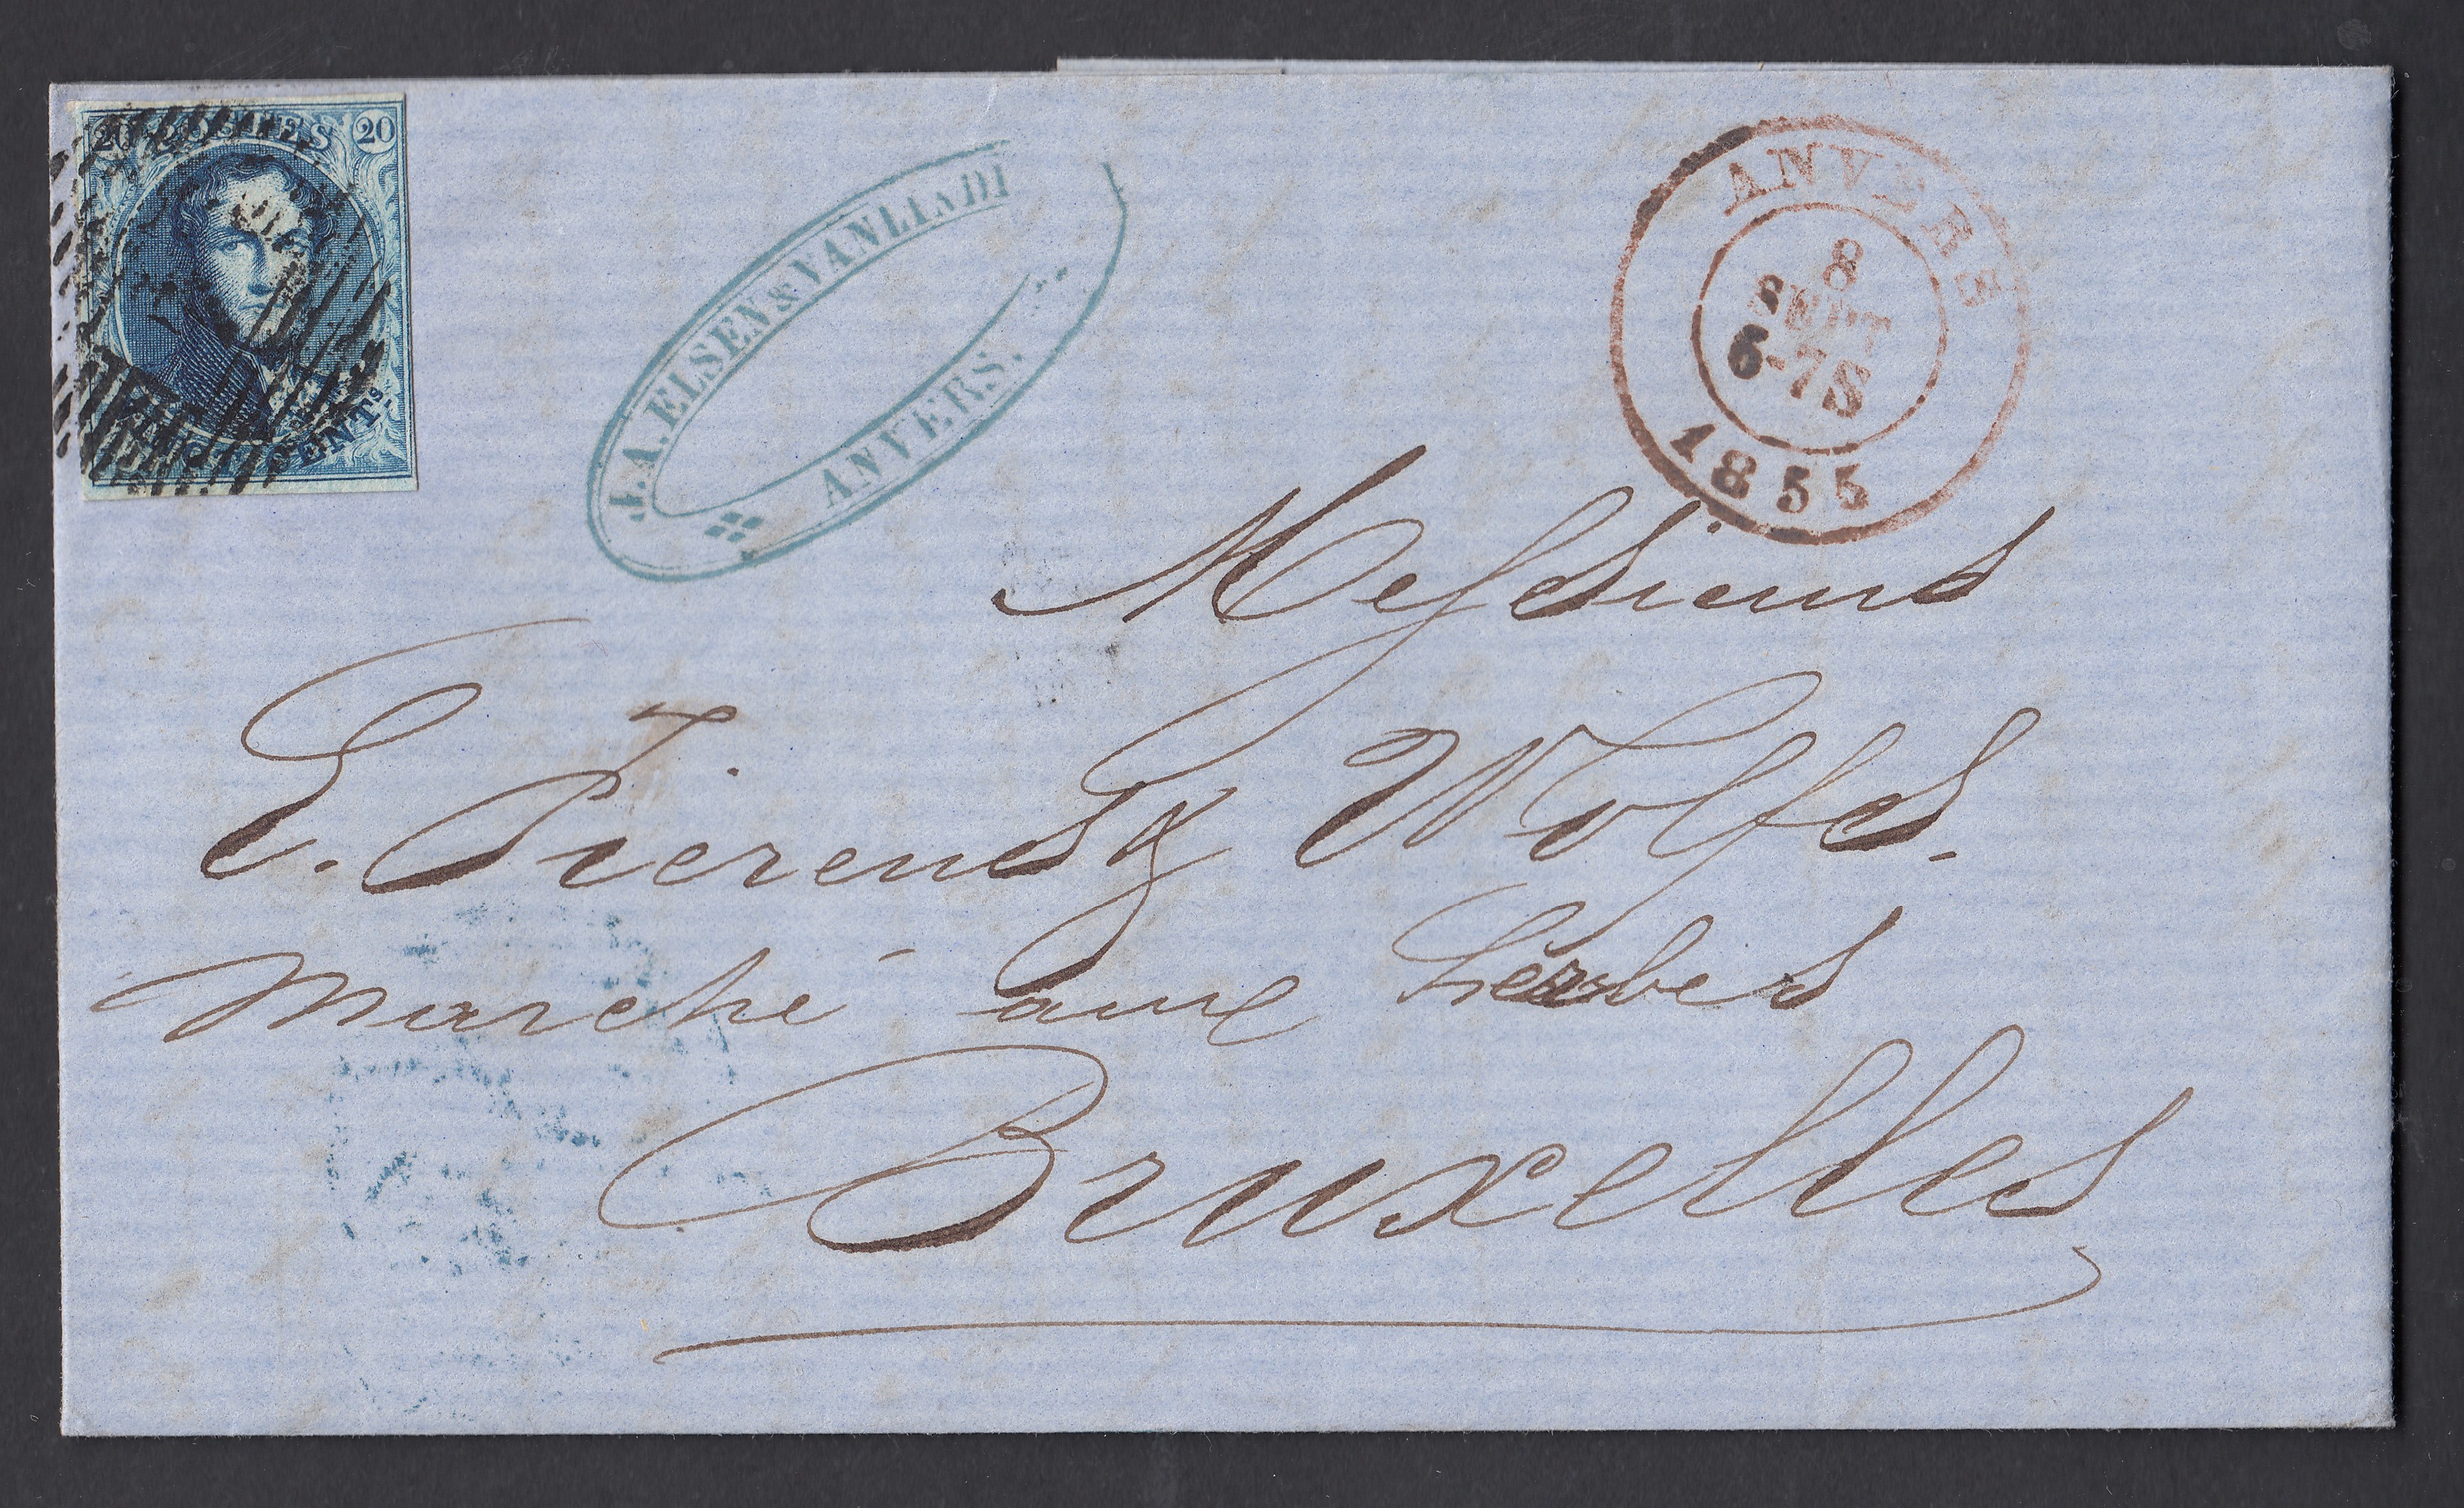 20 POSTES 20
CENTS.
J. A. ELSEN & VANLINDI
ANVERS.
ANVERS
8
SEPT
6-7S
1855
Messieurs
E. Pierens & Wolfs.
Marché aux herbes
Bruxelles